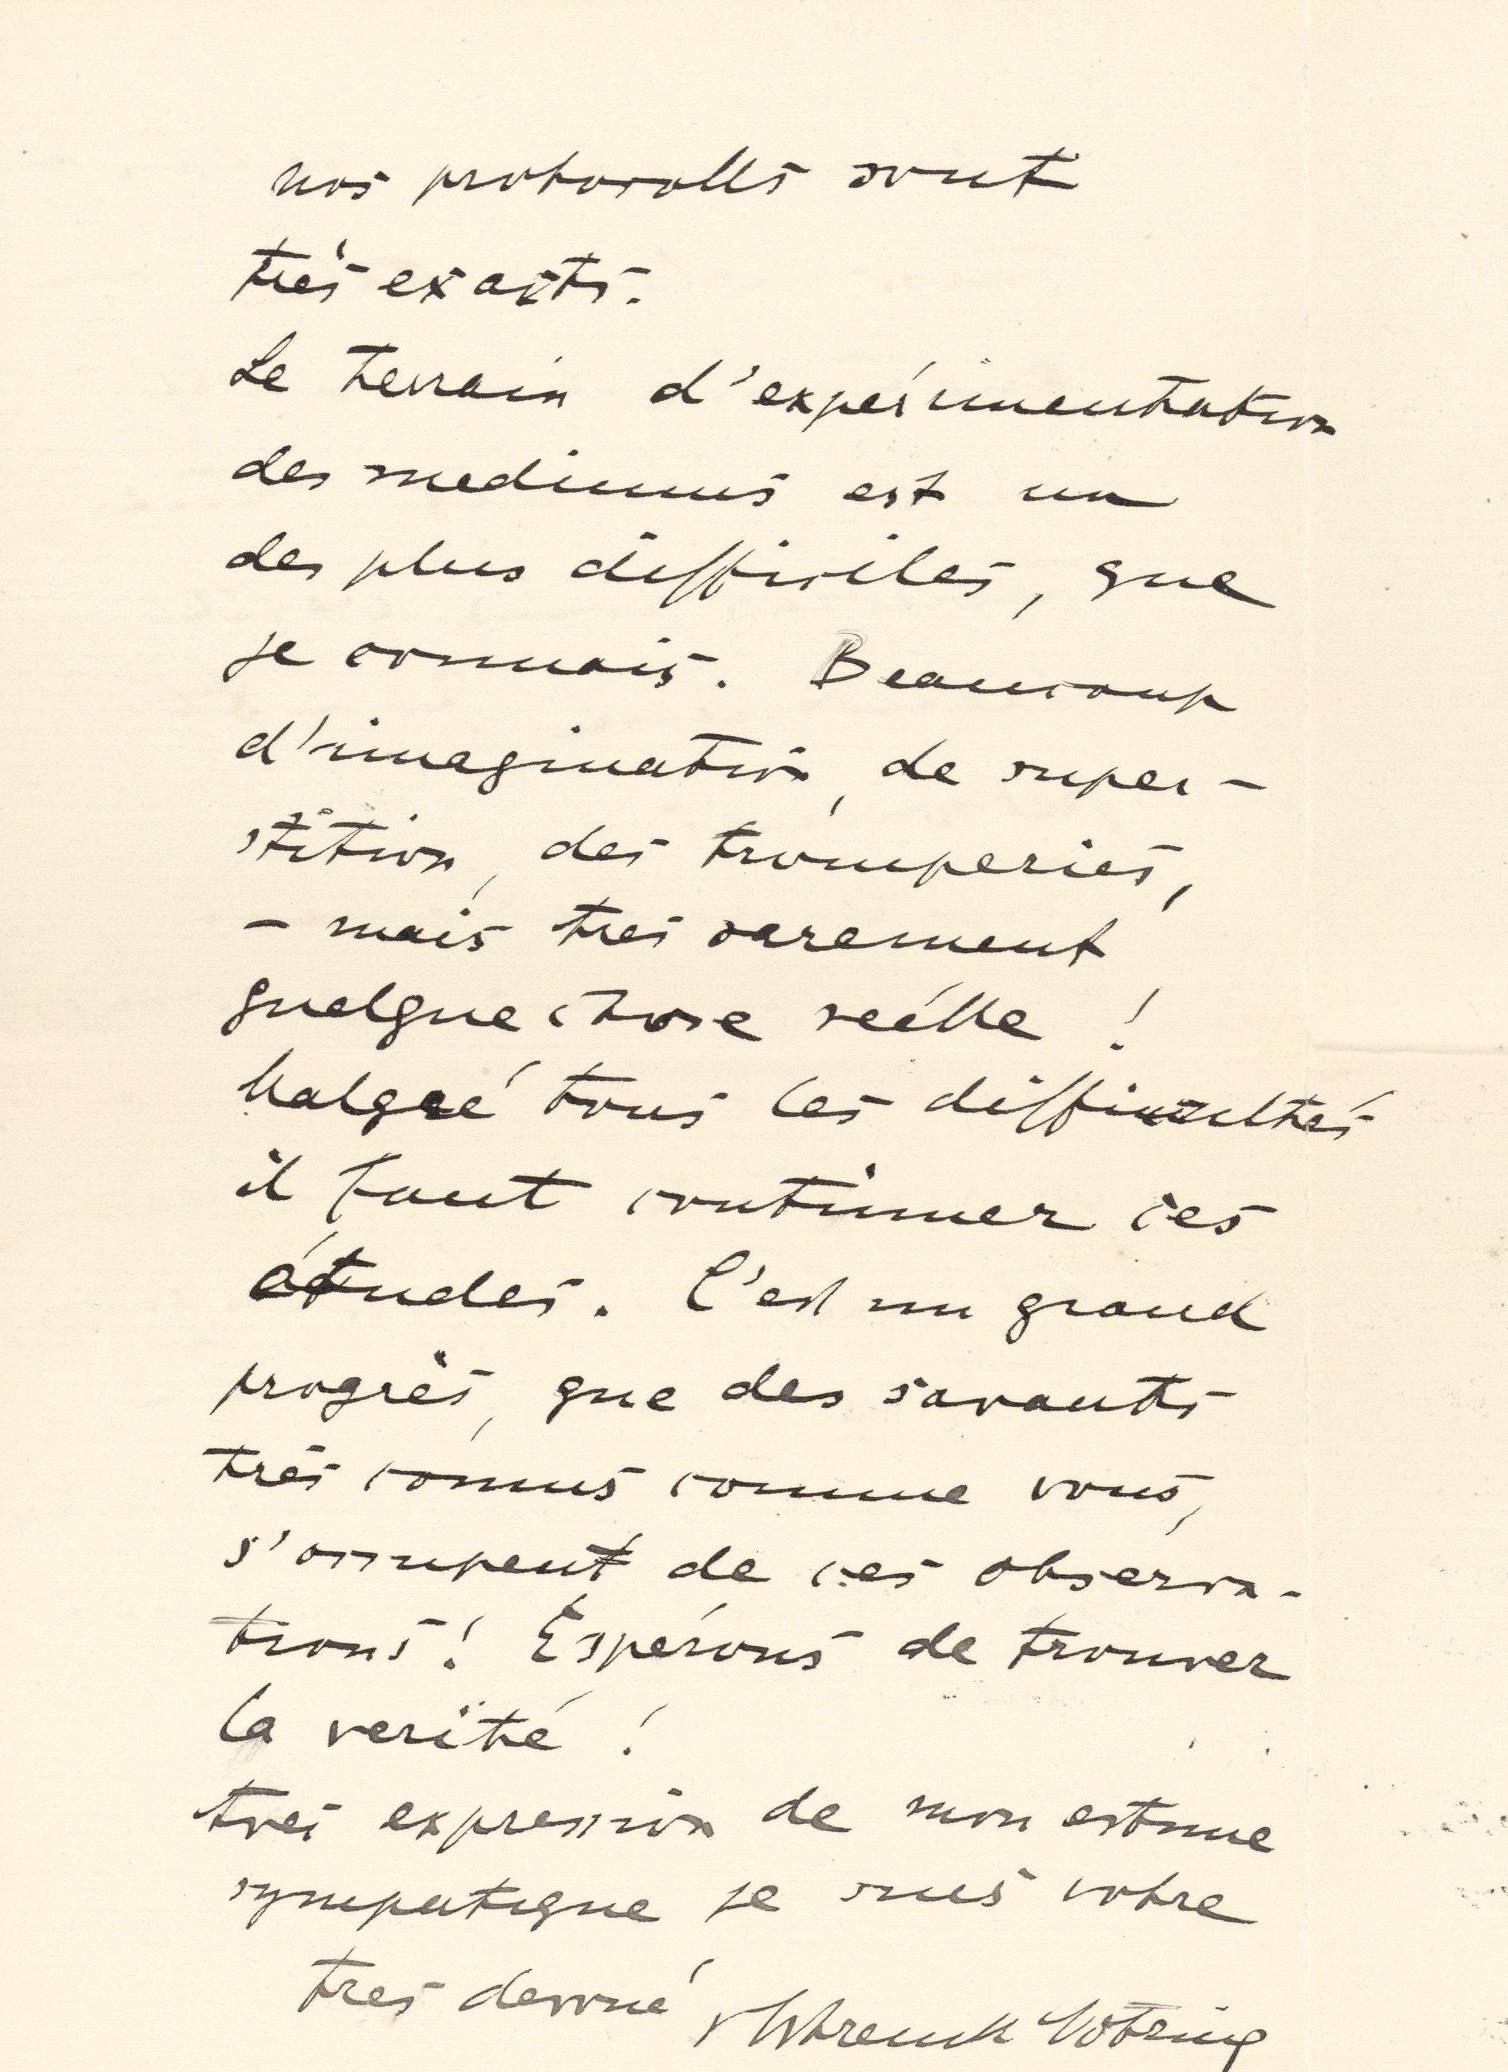 nos protocolls sont
très exacts.
Le terrain d'expérimentation
des mediums est un
des plus difficiles, que
je connais. Beaucoup
d'imagination, de super-
stition, des tromperies,
- mais tres rarement
quelque chose reélle !
Malgré tous les difficultés
il faut continuer ces
études. C'est un grand
progrès, que des savants
très connus comme vous,
s'occupent de ces observa-
tions! Espérons de trouver
la verité !
expression de mon estime
sympatique je suis votre
tres devoué Schrenck Notzing